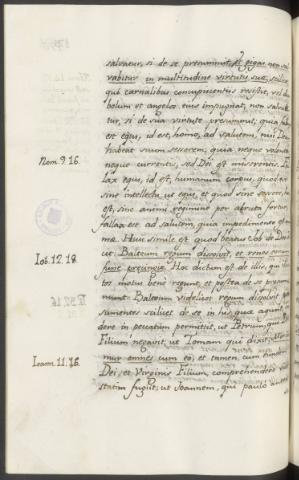 salvatur, si de se præsumunt, et gigas non sal
vabitur in multitudine virtutis suæ, scilicet
qui carnalibus concupiscentiis resistit, vel dia
bolum et angelos eius impugnat, non salva
tur, si de sua virtute præsumunt, quia
est equi, id est, homo, ad salutem, nisi Deum
habeat suum sessorem, quia neque volentis
Rom. 9. 16. neque currentis, sed Dei est miserentis. Fal
lax equi, id est, humanum corpus, quod
sine intellectu ut equi, et quod sine sapore, id
est, sine animi regimine per abrupta fertur,
fallax est ad salutem, quia impedimento est
Huic simile est quod beatus Iob de Deo
Iob. 12. 18. ut Balteum regum dissolvit, et renes eorum
fune præcingit. Hoc dictum est de illis, qui
tos motus bene regunt, et postea de se præsu
munt. Balteum videlicet regum dissolvit
sumentes scilicet de se in his quæ agunt,
dere in peccatum permittit, ut Petrum, qui
Filium negavit, ut Tomam qui dixit
Ioann. 11. 16. mur omnes cum eo, et tamen cum
Dei, et Virginis Filium, comprehendere
statim fugiit, ut Joannem, qui paulo ante